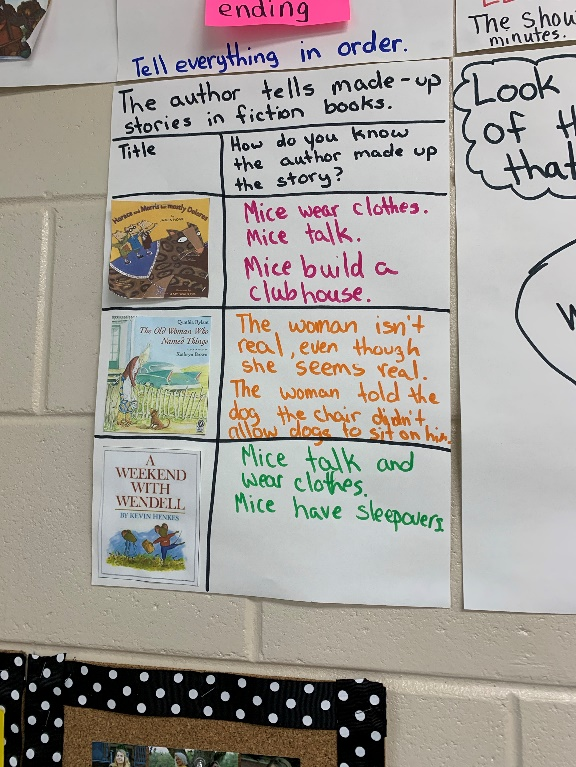 ending
Tell everything in order.
The author tells made-up
stories in fiction books.
Title
How do you know
the author made up
the story?
Horace and Morris but mostly Dolores
Mice wear clothes.
Mice talk.
Mice build a
clubhouse.
Cynthia Rylant
The Old Woman Who
Named Things
Kathryn Brown
The woman isn't
real, even though
she seems real.
The woman told the
dog the chair didn't
allow dogs to sit on him.
A
WEEKEND
WITH
WENDELL
BY KEVIN HENKES
Mice talk and
wear clothes.
Mice have sleepovers
The Show
minutes.
Look
of th
that